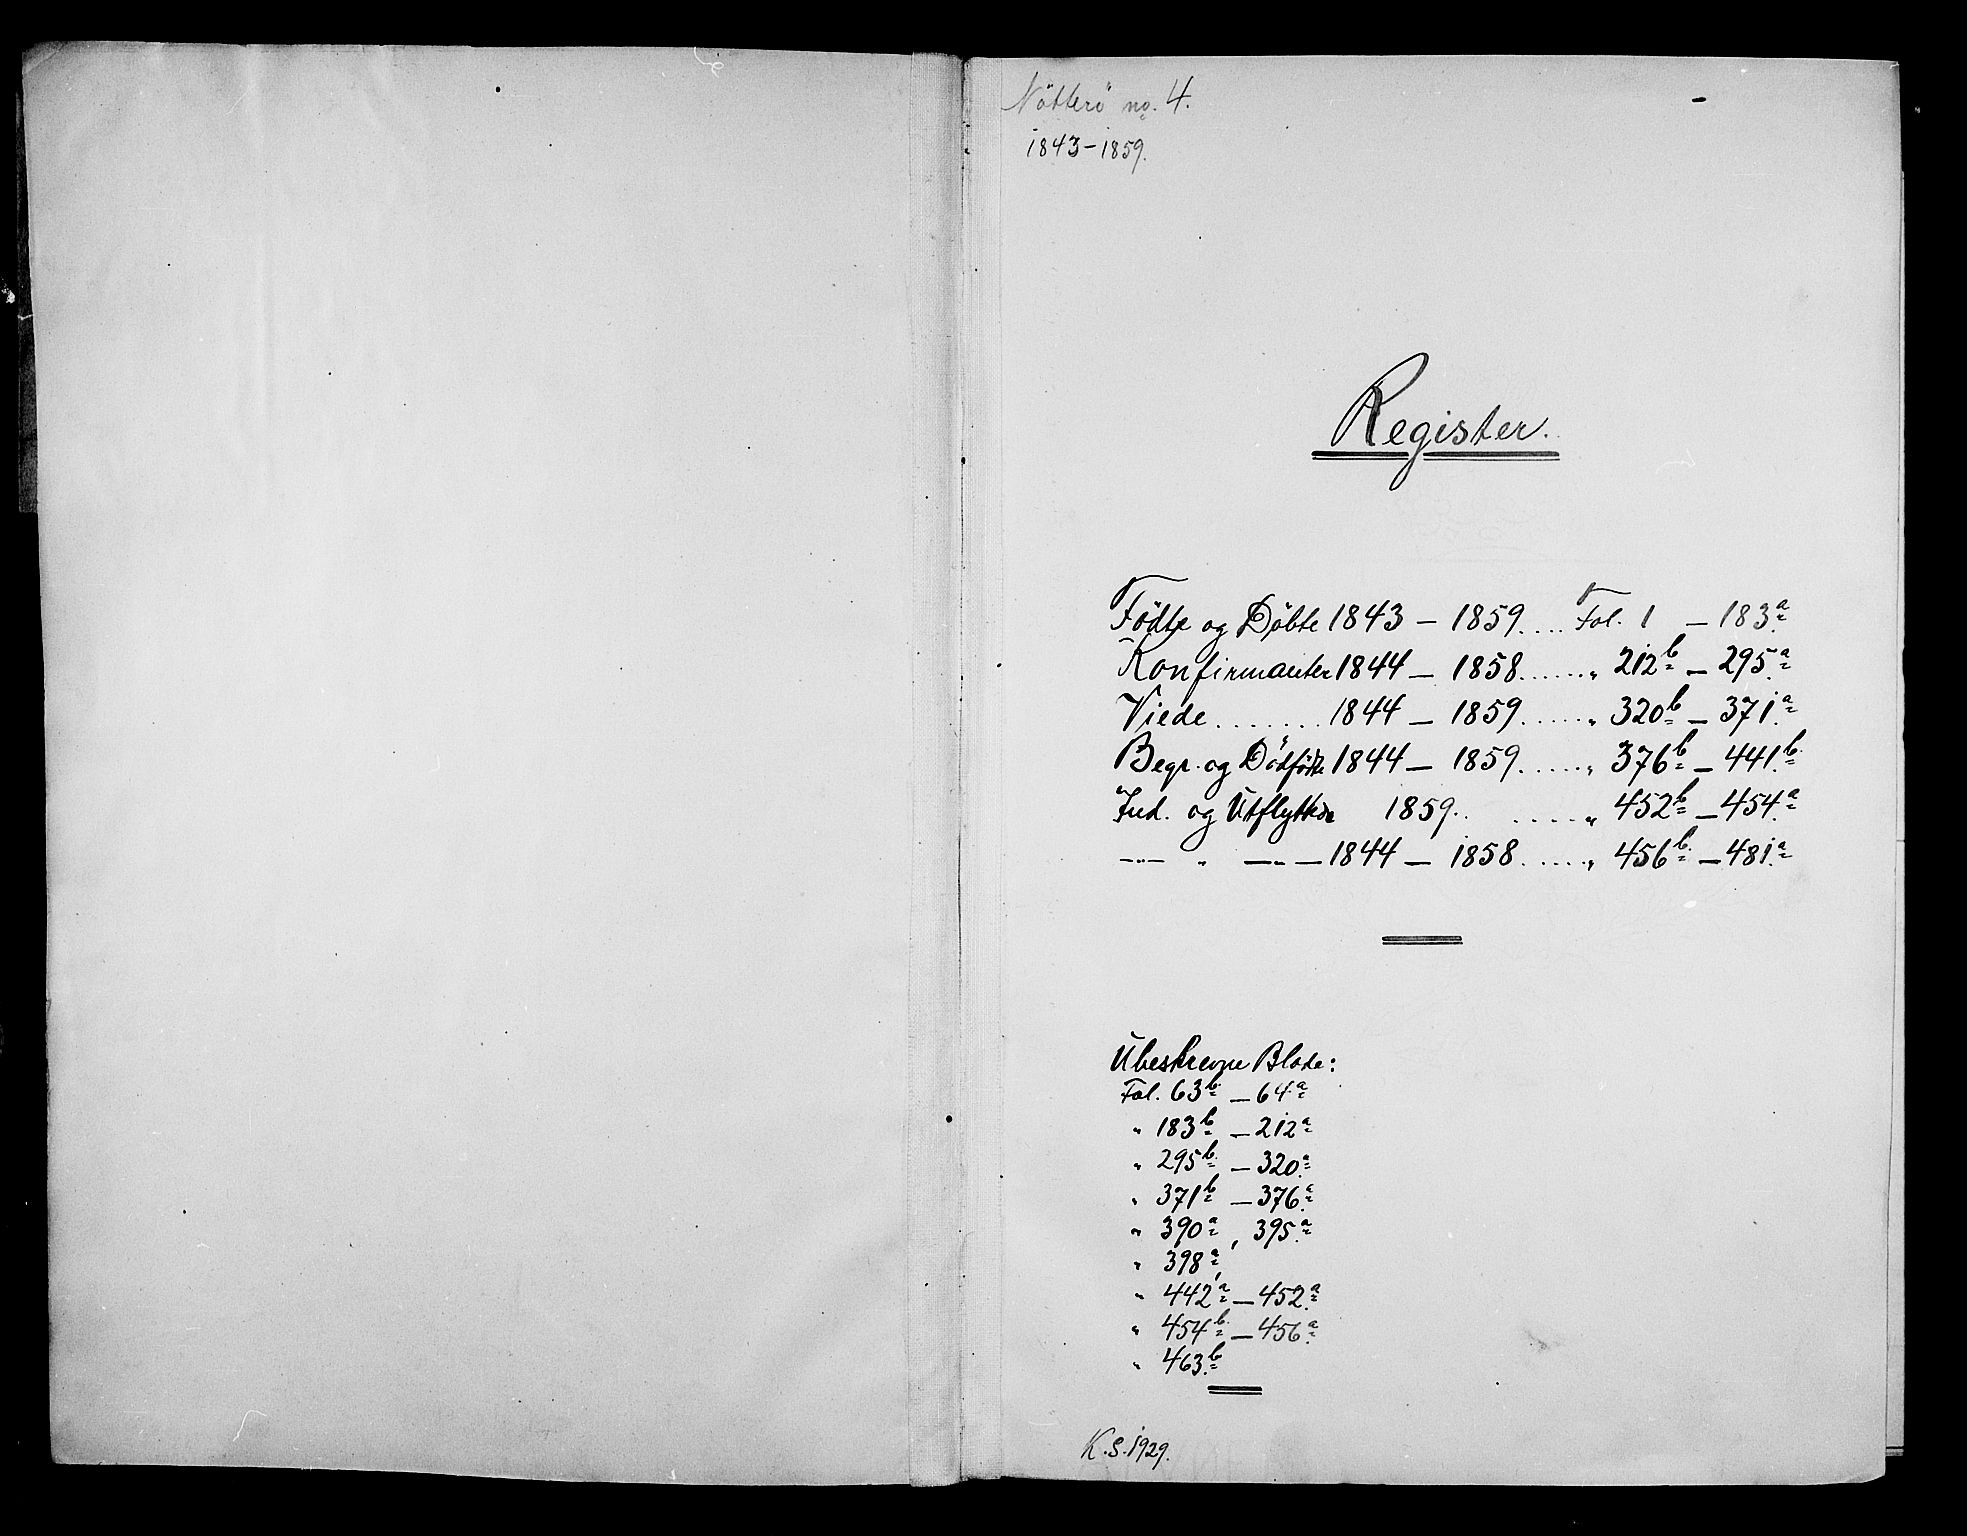 Nötterö no. 4.
1843-1859.
Register.
Födte og Döbte 1843 - 1859..... Fol. 1 - 183.a
Konfirmanter 1844 - 1858....... " 212b - 295.a
Viede....... 1844 - 1859...... " 320b - 371.a
Begr. og Dödfödte 1844 - 1859...... " 376b - 441.b
Ind. og Utflyttede 1859. ..... " 452b - 454.a
-"- " -"- 1844 - 1858...... " 456b - 481.a
Ubeskrevne Blade:
Fol. 63b - 64a
" 183b - 212a
" 295b - 320.a
" 371b - 376.a
" 390a, 395.a
" 398a,
" 442a - 452.a
" 454b - 456.a
" 463.b
K.S. 1929.